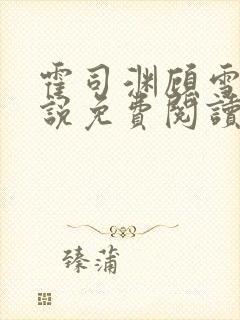 霍司渊顾雪
說免費閱讀
臻蒲